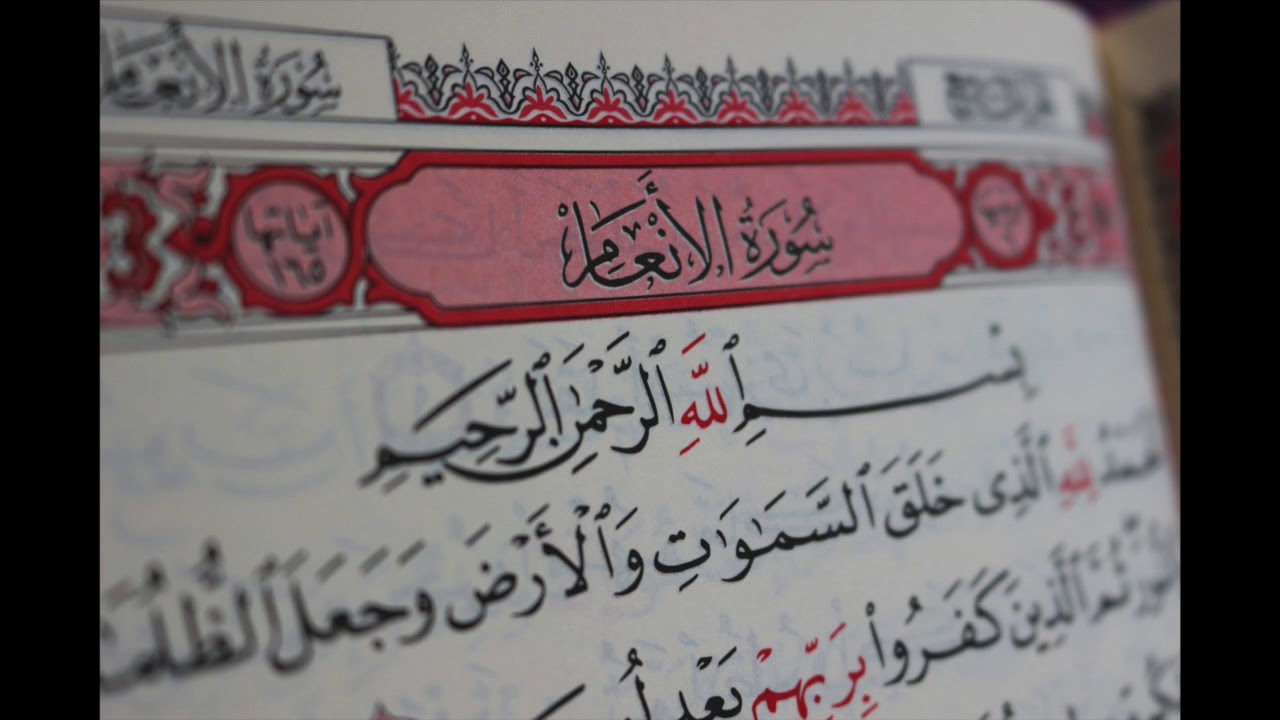 سُورَةُ الأَنْعَامِ
سُورَةُ الأَنْعَامِ
آيَاتُهَا
١٦٥
بِسْمِ ٱللَّهِ ٱلرَّحْمَٰنِ ٱلرَّحِيمِ
لِلَّهِ ٱلَّذِى خَلَقَ ٱلسَّمَٰوَٰتِ وَٱلْأَرْضَ وَجَعَلَ ٱلظُّلُمَٰتِ
ثُمَّ ٱلَّذِينَ كَفَرُوا۟ بِرَبِّهِمْ